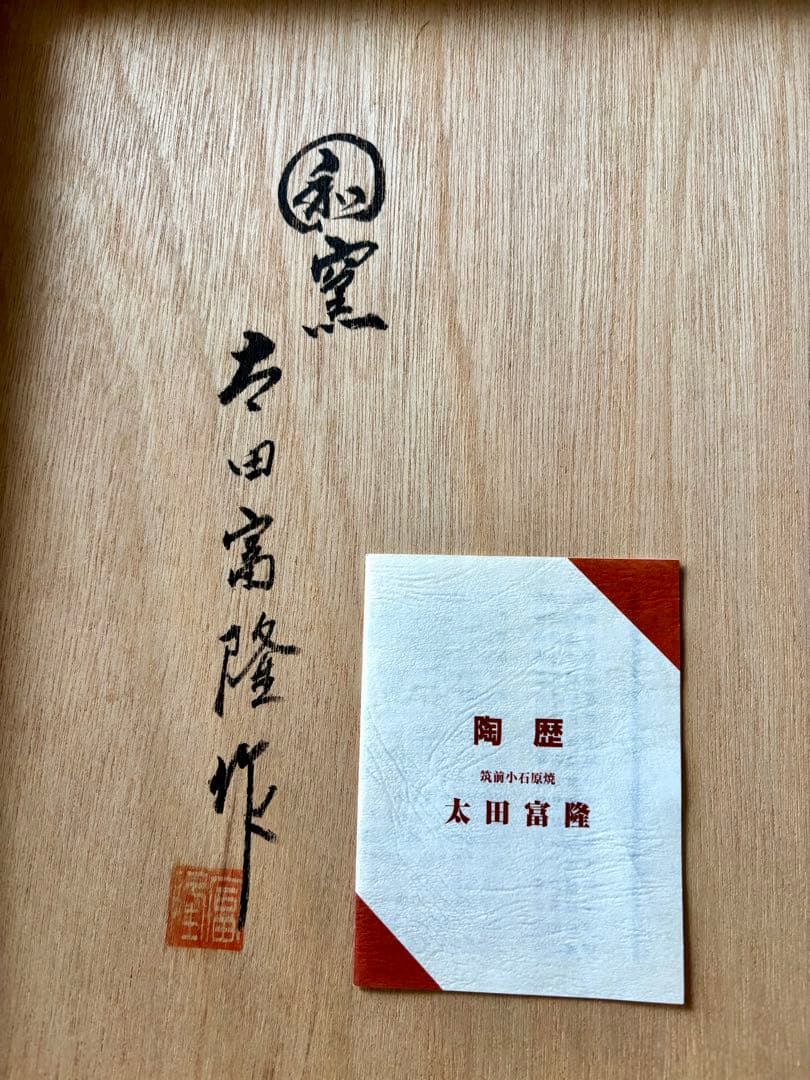 ㊑窯
太田富隆作
富隆
陶歴
筑前小石原焼
太田富隆